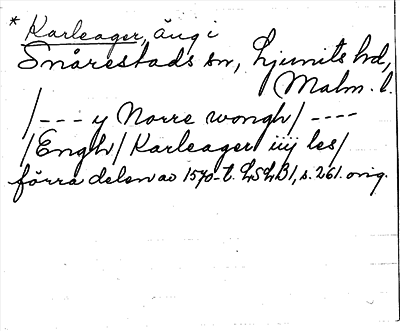 * Karleager, äng i
Snårestads sn, Ljunits hd,
Malm. l.
/--- y Norre wongh/ ----
/Engh/ Karleager iiij les/
förra delen av 1570-t. LSLB1, s. 261. orig.